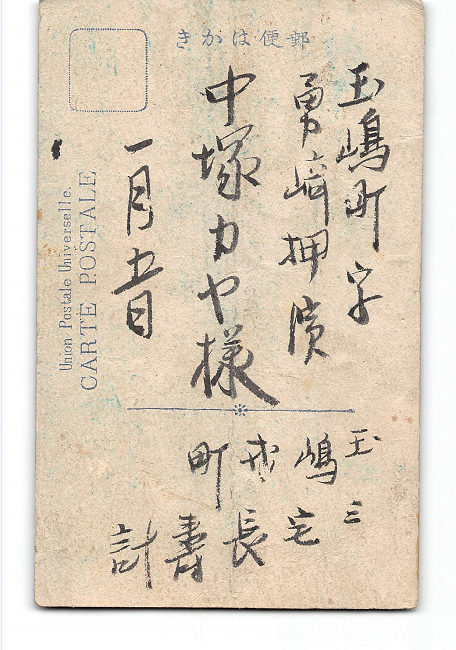 郵便はがき
玉嶋町字
勇崎押濱
中塚カヤ様
一月五日
玉三
嶋宅
戎長
町壽
計
Union Postale Universelle.
CARTE POSTALE